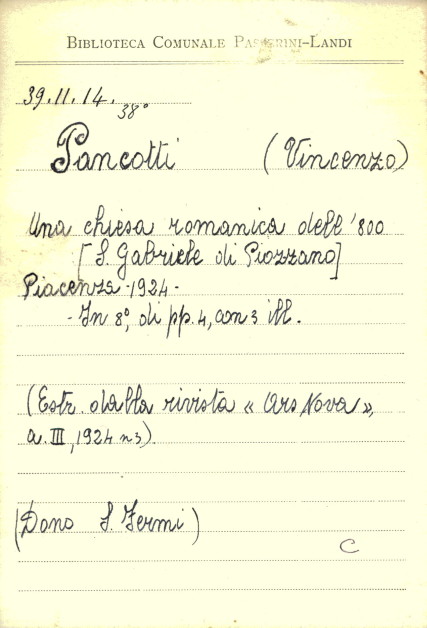 BIBLIOTECA COMUNALE PASSERINI-LANDI
39.11.14.38°
Pancotti (Vincenzo)
Una chiesa romanica dell'800
[S. Gabriele di Piozzano]
Piacenza - 1924 -
- In 8°, di pp. 4, con 3 ill.
(Estr. dalla rivista « Ars Nova »,
a. III, 1924 n 3).
(Dono S. Fermi)
C